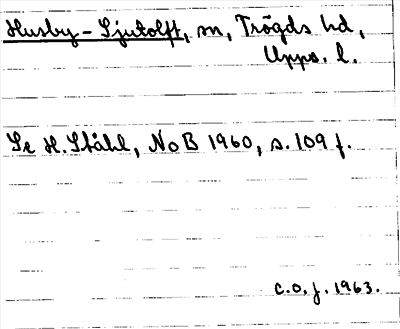 Husby-Sjutolft, sn, Trögds hd,
Upps. l.
Se H. Ståhl, NoB 1960, s. 109 f.
C.O.J. 1963.